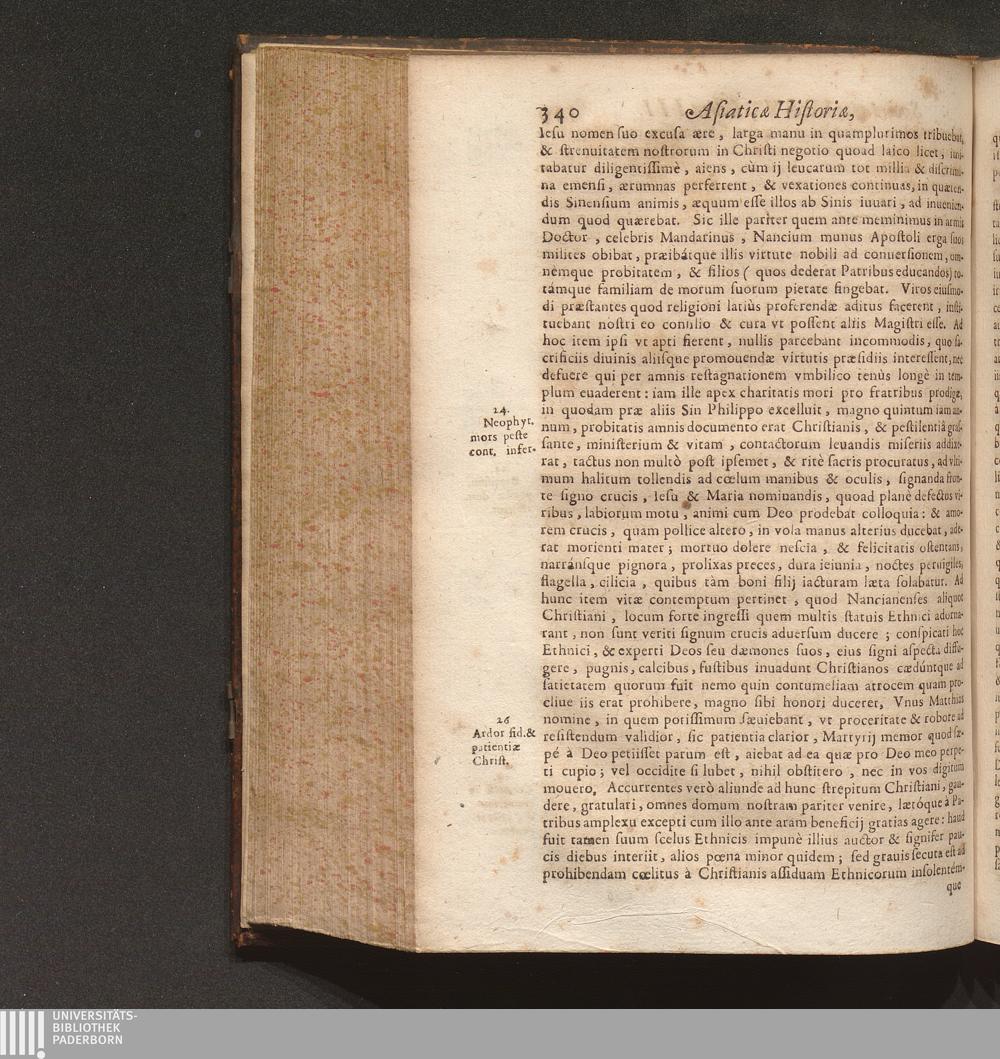 340 Asiaticæ Historiæ,
Iesu nomen suo excusa ære, larga manu in quamplurimos tribuebat,
& strenuitatem nostrorum in Christi negotio quoad laico licet, imi-
tabatur diligentissimè, aiens, cùm ij leucarum tot millia & discrimi-
na emensi, ærumnas perferrent, & vexationes continuas, in quæren-
dis Sinensium animis, æquum esse illos ab Sinis iuuari, ad inuenien-
dum quod quærebat. Sic ille pariter quem ante meminimus in armis
Doctor, celebris Mandarinus, Nancium munus Apostoli erga suos
milites obibat, præibátque illis virtute nobili ad conuersionem, om-
némque probitatem, & filios (quos dederat Patribus educandos) to-
támque familiam de morum suorum pietate fingebat. Viros eiusmo-
di præstantes quod religioni latiùs proferendæ aditus facerent, insti-
tuebant nostri eo consilio & cura vt possent aliis Magistri esse. Ad
hoc item ipsi vt apti fierent, nullis parcebant incommodis, quo sa-
crificiis diuinis aliisque promouendæ virtutis præsidiis interessent, nec
defuere qui per amnis restagnationem vmbilico tenùs longè in tem-
plum euaderent: iam ille apex charitatis mori pro fratribus prodigæ,
24.
Neophyt.
mors peste
cont. infer.
in quodam præ aliis Sin Philippo excelluit, magno quintum iam an-
num, probitatis amnis documento erat Christianis, & pestilentiâ gras-
sante, ministerium & vitam, contactorum leuandis miseriis addixe-
rat, tactus non multò post ipsemet, & ritè sacris procuratus, ad vlti-
mum halitum tollendis ad cœlum manibus & oculis, signanda fron-
te signo crucis, Iesu & Maria nominandis, quoad planè defectus vi-
ribus, labiorum motu, animi cum Deo prodebat colloquia: & amo-
rem crucis, quam pollice altero, in vola manus alterius ducebat, ade-
rat morienti mater; mortuo dolere nescia, & felicitatis ostentans,
narránsque pignora, prolixas preces, dura ieiunia, noctes peruigiles,
flagella, cilicia, quibus tàm boni filij iacturam læta solabatur. Ad
hunc item vitæ contemptum pertinet, quod Nancianenses aliquot
Christiani, locum forte ingressi quem multis statuis Ethnici adorna-
rant, non sunt veriti signum crucis aduersum ducere; conspicati hoc
Ethnici, & experti Deos seu dæmones suos, eius signi aspectu diffu-
gere, pugnis, calcibus, fustibus inuadunt Christianos cædúntque ad
satietatem quorum fuit nemo quin contumeliam atrocem quam pro-
cliue iis erat prohibere, magno sibi honori duceret, Vnus Matthias
26
Ardor fid. &
patientiæ
Christ.
nomine, in quem potissimum sæuiebant, vt proceritate & robore ad
resistendum validior, sic patientia clarior, Martyrij memor quod sæ-
pé à Deo petiisset parum est, aiebat ad ea quæ pro Deo meo perpe-
ti cupio; vel occidite si lubet, nihil obstitero, nec in vos digitum
mouero. Accurrentes verò aliunde ad hunc strepitum Christiani, gau-
dere, gratulari, omnes domum nostram pariter venire, lætóque à Pa-
tribus amplexu excepti cum illo ante aram beneficij gratias agere: haud
fuit tamen suum scelus Ethnicis impunè illius auctor & signifer pau-
cis diebus interiit, alios pœna minor quidem; sed grauis secuta est ad
prohibendam cœlitus à Christianis assiduam Ethnicorum insolentém-
que
UNIVERSITÄTS-
BIBLIOTHEK
PADERBORN